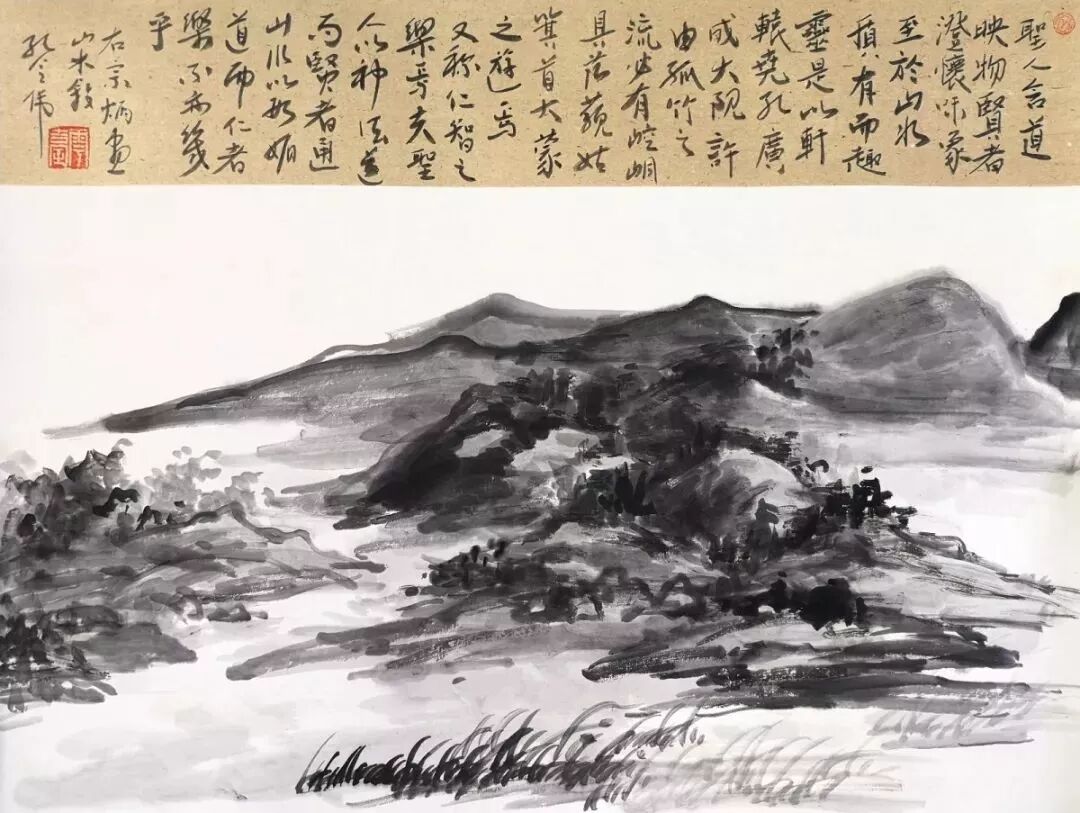 聖人含道
映物賢者
澄懷味象
至於山水
質有而趣
靈是以軒
轅堯孔廣
成大隗許
由孤竹之
流必有崆峒
具茨藐姑
箕首大蒙
之遊焉
又稱仁智之
樂焉夫聖
人以神法道
而賢者通
山水以形媚
道而仁者
樂不亦幾
乎
右宗炳畫
山水敘
孔令偉